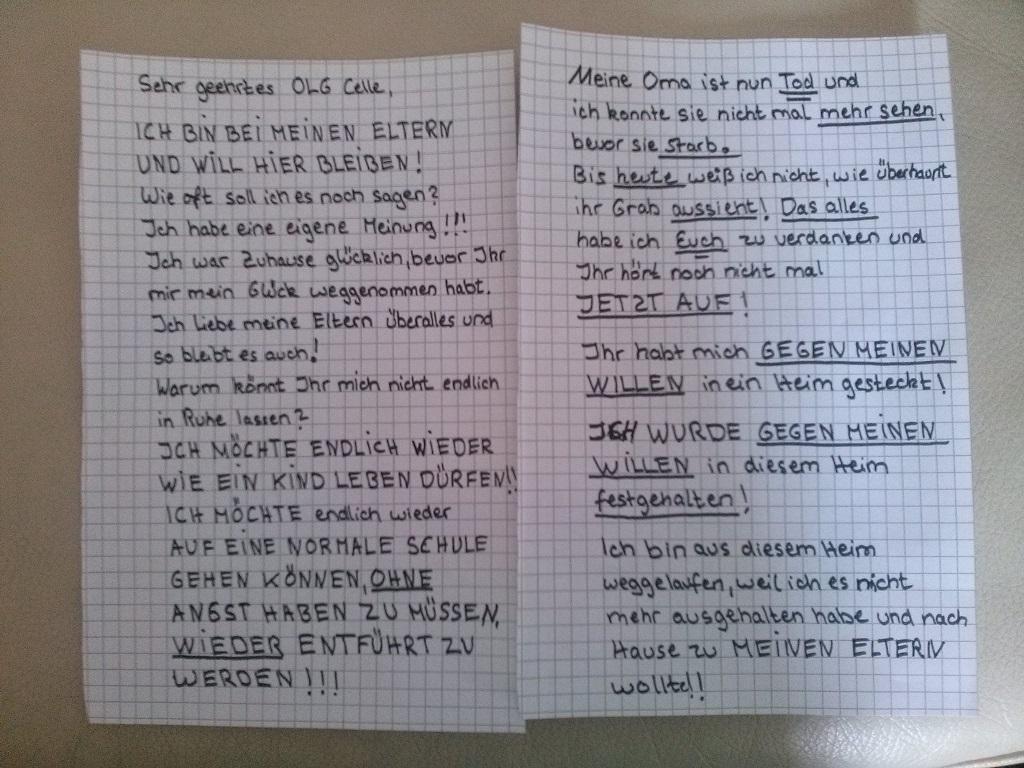 Sehr geehrtes OLG Celle,
ICH BIN BEI MEINEN ELTERN
UND WILL HIER BLEIBEN!
Wie oft soll ich es noch sagen?
Ich habe eine eigene Meinung!!!
Ich war Zuhause glücklich, bevor Ihr
mir mein Glück weggenommen habt.
Ich Liebe meine Eltern überalles und
so bleibt es auch!
Warum könnt Ihr mich nicht endlich
in Ruhe lassen?
ICH MÖCHTE ENDLICH WIEDER
WIE EIN KIND LEBEN DÜRFEN!!
ICH MÖCHTE endlich wieder
AUF EINE NORMALE SCHULE
GEHEN KÖNNEN, OHNE
ANGST HABEN ZU MÜSSEN,
WIEDER ENTFÜHRT ZU
WERDEN!!!
Meine Oma ist nun Tod und
ich konnte sie nicht mal mehr sehen,
bevor sie starb.
Bis heute weiß ich nicht, wie überhaupt
ihr Grab aussieht! Das alles
habe ich Euch zu verdanken und
Ihr hört noch nicht mal
JETZT AUF!
Ihr habt mich GEGEN MEINEN
WILLEN in ein Heim gesteckt!
ICH WURDE GEGEN MEINEN
WILLEN in diesem Heim
festgehalten!
Ich bin aus diesem Heim
weggelaufen, weil ich es nicht
mehr ausgehalten habe und nach
Hause zu MEINEN ELTERN
wollte!!